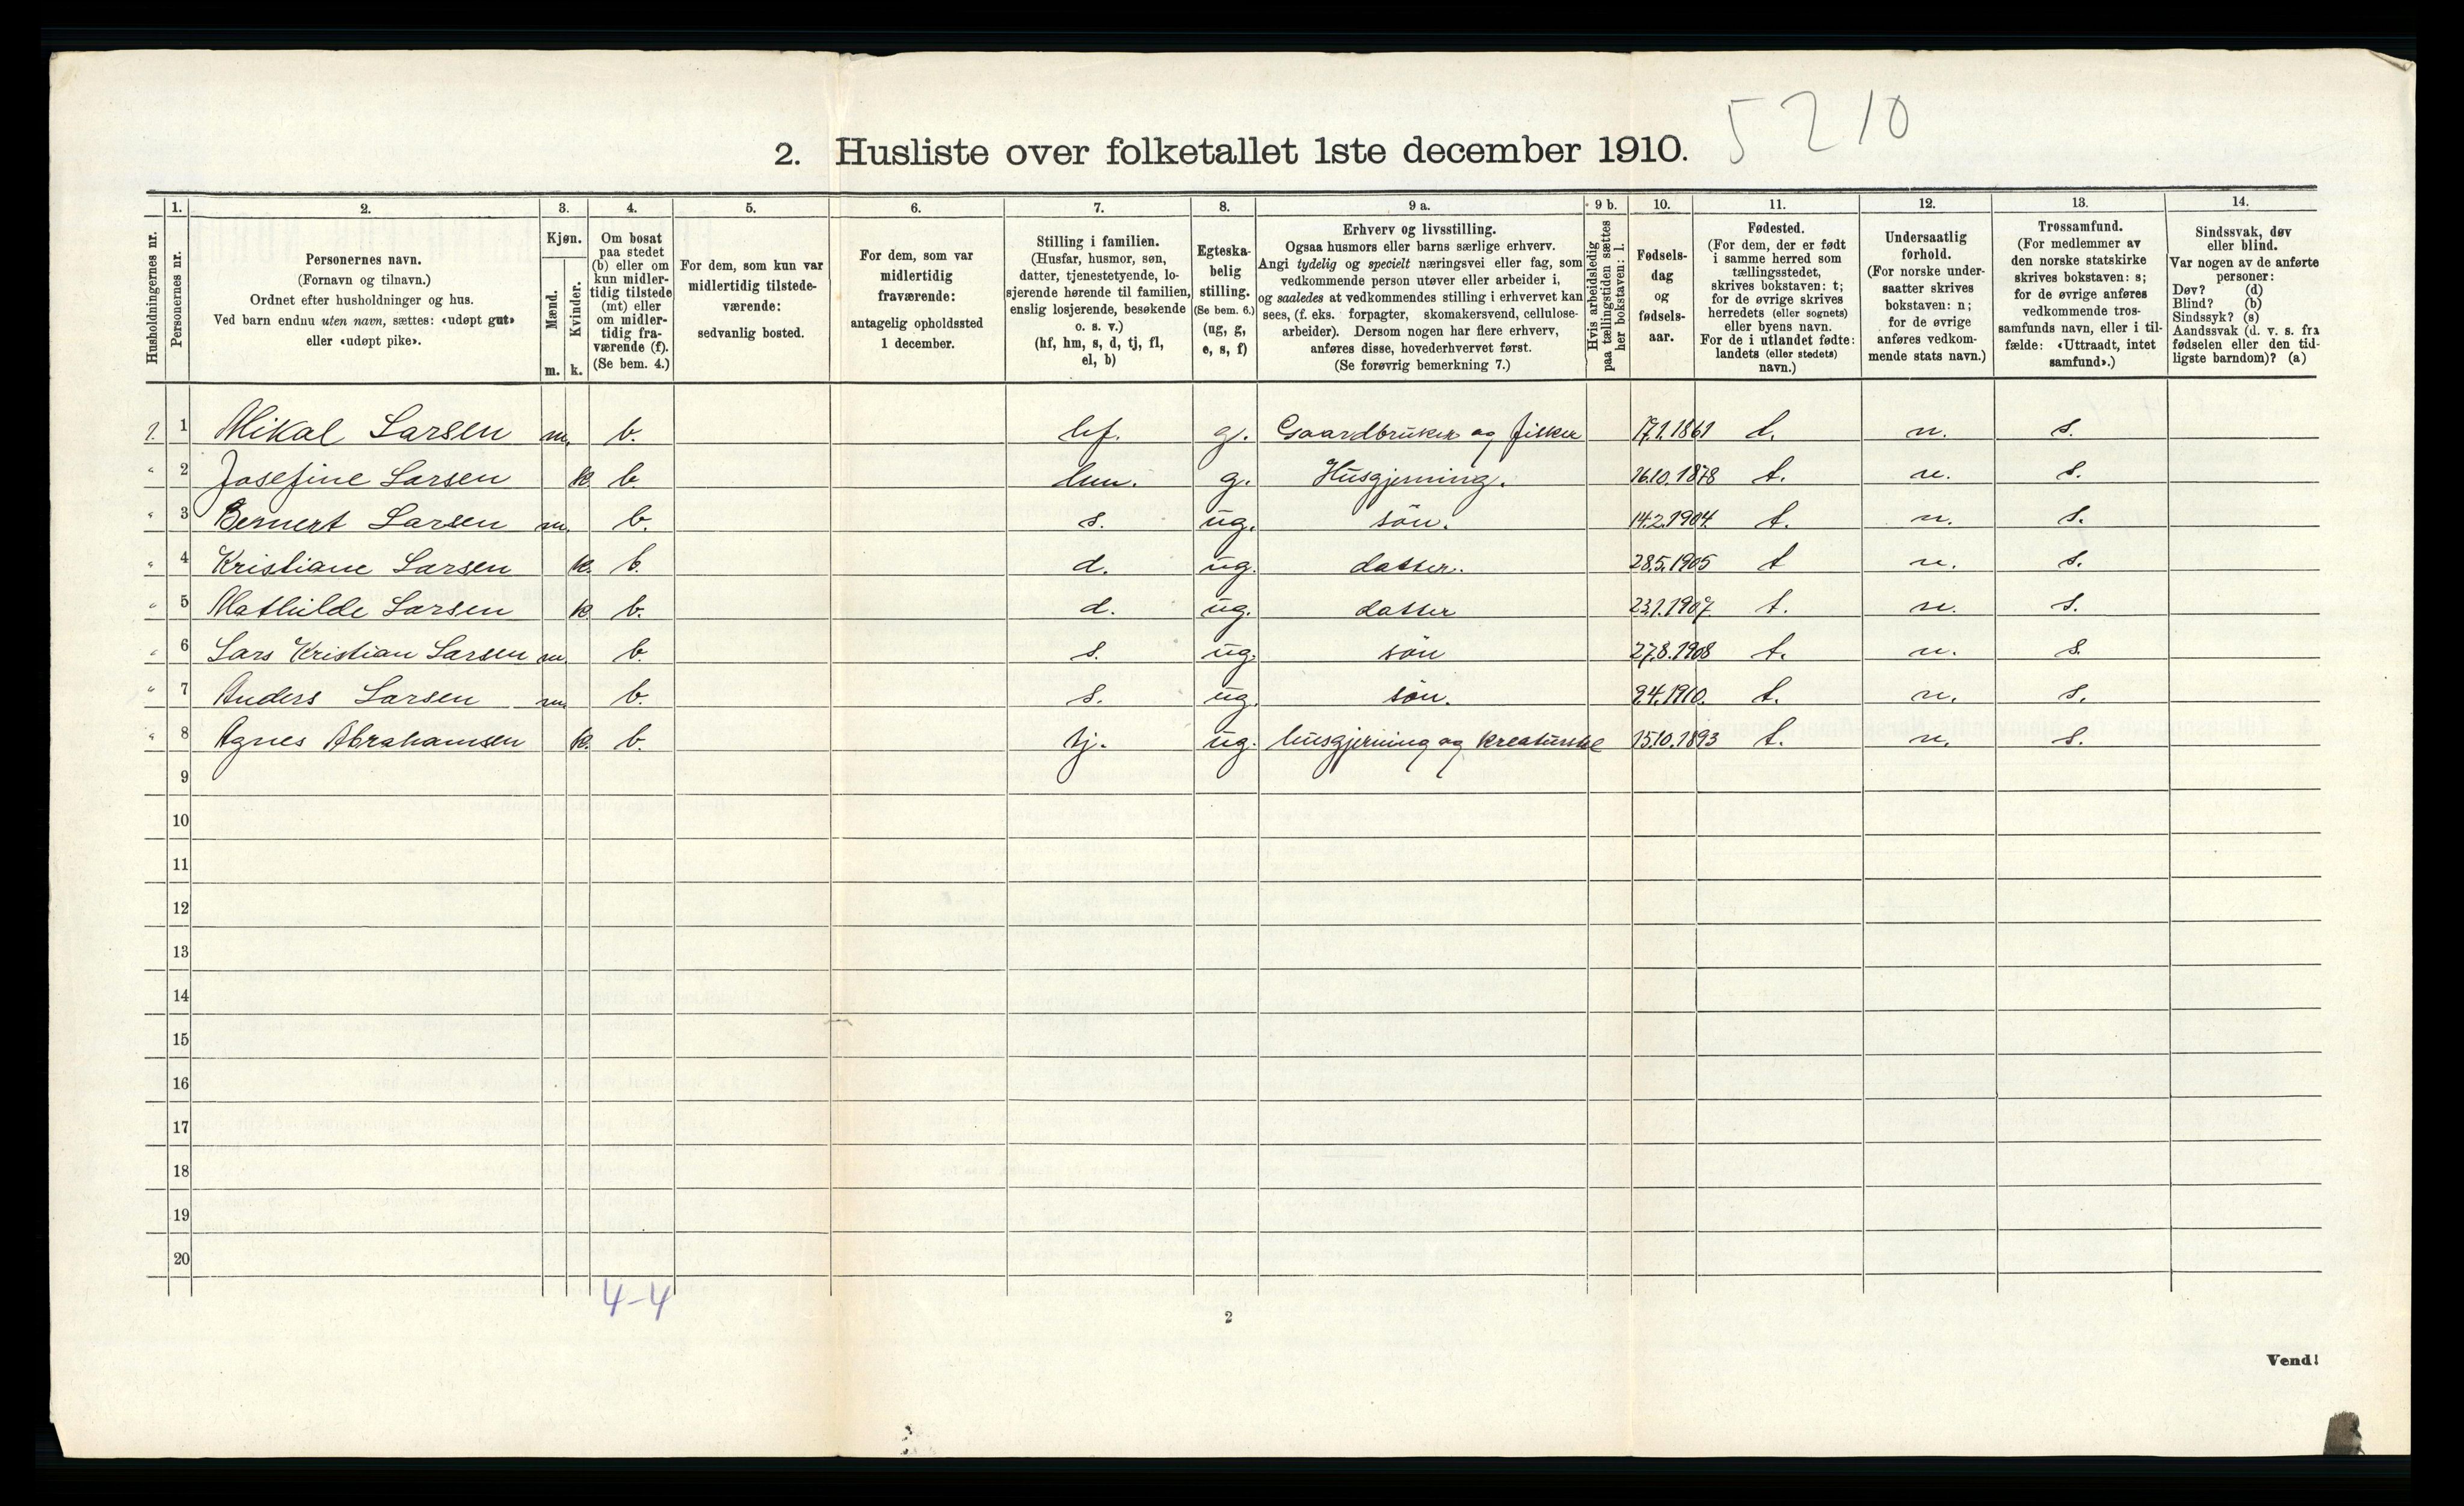 5210
2. Husliste over folketallet 1ste december 1910.
Husholdningernes nr.
1.
Personernes nr.
2.
Personernes navn.
(Fornavn og tilnavn.)
Ordnet efter husholdninger og hus.
Ved barn endnu uten navn, sættes: «udøpt gut»
eller «udøpt pike».
3.
Kjøn.
Mænd.
Kvinder.
m. k.
4.
Om bosat
paa stedet
(b) eller om
kun midler-
tidig tilstede
(mt) eller
om midler-
tidig fra-
værende (f).
(Se bem. 4.)
5.
For dem, som kun var
midlertidig tilstede-
værende:
sedvanlig bosted.
6.
For dem, som var
midlertidig
fraværende:
antagelig opholdssted
1 december.
7.
Stilling i familien.
(Husfar, husmor, søn,
datter, tjenestetyende, lo-
sjerende hørende til familien,
enslig losjerende, besøkende
o. s. v.)
(hf, hm, s, d, tj, fl,
el, b)
8.
Egteska-
belig
stilling.
(Se bem. 6.)
(ug, g,
e, s, f)
9 a.
Erhverv og livsstilling.
Ogsaa husmors eller barns særlige erhverv.
Angi tydelig og specielt næringsvei eller fag, som
vedkommende person utøver eller arbeider i,
og saaledes at vedkommendes stilling i erhvervet kan
sees, (f. eks. forpagter, skomakersvend, cellulose-
arbeider). Dersom nogen har flere erhverv,
anføres disse, hovederhvervet først.
(Se forøvrig bemerkning 7.)
9 b.
Hvis arbeidsledig
paa tællingstiden sættes
her bokstaven: l.
10.
Fødsels-
dag
og
fødsels-
aar.
11.
Fødested.
(For dem, der er født
i samme herred som
tællingsstedet,
skrives bokstaven: t;
for de øvrige skrives
herredets (eller sognets)
eller byens navn.
For de i utlandet fødte:
landets (eller stedets)
navn.)
12.
Undersaatlig
forhold.
(For norske under-
saatter skrives
bokstaven: n;
for de øvrige
anføres vedkom-
mende stats navn.)
13.
Trossamfund.
(For medlemmer av
den norske statskirke
skrives bokstaven: s;
for de øvrige anføres
vedkommende tros-
samfunds navn, eller i til-
fælde: «Uttraadt, intet
samfund».)
14.
Sindssvak, døv
eller blind.
Var nogen av de anførte
personer:
Døv? (d)
Blind? (b)
Sindssyk? (s)
Aandssvak (d. v. s. fra
fødselen eller den tid-
ligste barndom)? (a)
1. 1 Mikal Larsen m. b. hf. g. Gaardbruker og fisker 17.1.1861 t. n. s.
" 2 Josefine Larsen k. b. hm. g. Husgjerning. 16.10.1878 t. n. s.
" 3 Bernert Larsen m. b. s. ug. sön. 14.2.1904 t. n. s.
" 4 Kristiane Larsen k. b. d. ug. datter. 28.5.1905 t n. s.
" 5 Mathilde Larsen k. b. d. ug. datter 23.1.1907. t. n. s.
" 6 Lars Kristian Larsen m. b. s. ug. sön 27.8.1908 t. n. s.
" 7 Anders Larsen m. b. s. ug. sön. 9.4.1910. t. n. s.
" 8 Agnes Abrahamsen k. b. tj. ug. husgjerning og kreaturstel 15.10.1893 t. n. s.
9
10
11
12
13
14
15
16
17
18
19
20
4-4
2
Vend!